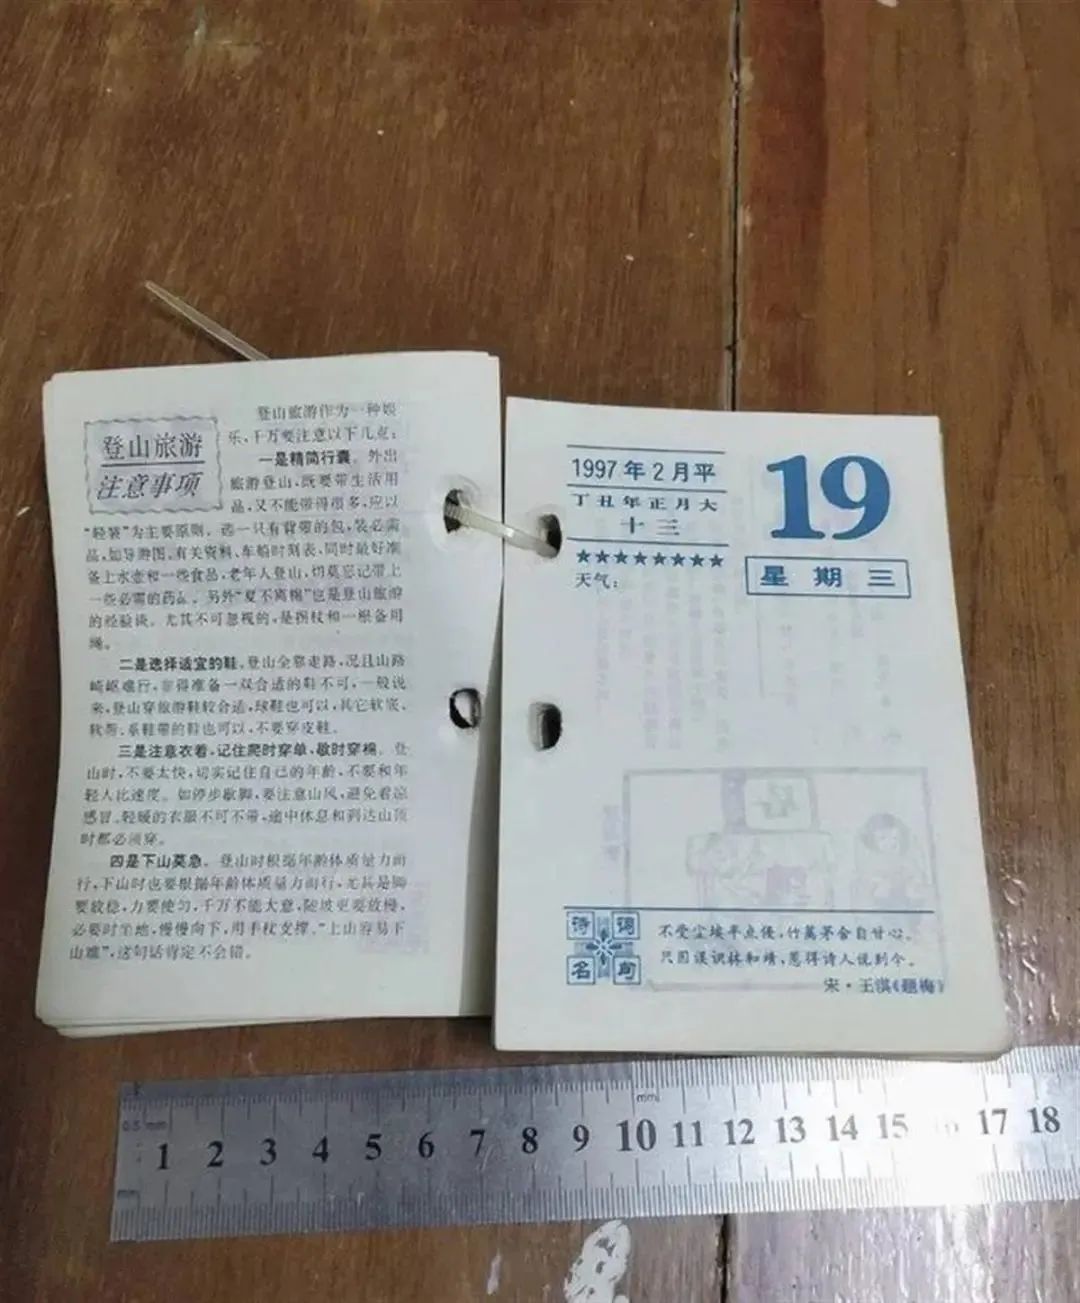 登山旅游
注意事项
登山旅游作为一种娱
乐,千万要注意以下几点:
一是精简行囊。外出
旅游登山,既要带生活用
品,又不能带得很多,应以
“轻装”为主要原则。选一只有背带的包,装必需
品,如导游图、有关资料、车船时刻表,同时最好准
备上水壶和一些食品,老年人登山,切莫忘记带上
一些必需的药品。另外“夏不离棉”也是登山旅游
的经验谈。尤其不可忽视的,是拐杖和一根备用
绳。
二是选择适宜的鞋,登山全靠走路,况且山路
崎岖难行,非得准备一双合适的鞋不可,一般说
来,登山穿旅游鞋较合适,球鞋也可以,其它软底、
软帮、系鞋带的鞋也可以,不要穿皮鞋。
三是注意衣着,记住爬时穿单,歇时穿棉。登
山时,不要太快,切实记住自己的年龄,不要和年
轻人比速度。如停步歇脚,要注意山风,避免着凉
感冒。轻暖的衣服不可不带,途中休息和到达山顶
时都必须穿。
四是下山莫急。登山时根据年龄体质量力而
行,下山时也要根据年龄体质量力而行,尤其是脚
要放稳,力要使匀,千万不能大意,陡坡更要放慢,
必要时坐地,慢慢向下,用手杖支撑。“上山容易下
山难”,这句话肯定不会错。
1997年2月平
丁丑年正月大
十三
★★★★★★★★
天气:
19
星期三
诗词
名句
不受尘埃半点侵,竹篱茅舍自甘心。
只因误识林和靖,惹得诗人说到今。
宋·王淇《题梅》
0.5mm
mm
1 2 3 4 5 6 7 8 9 10 11 12 13 14 15 17 18
mm